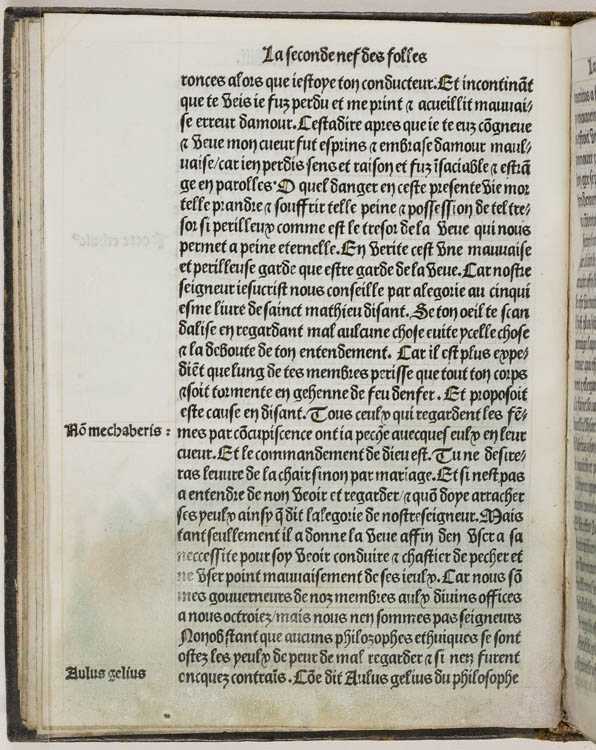 La seconde nef des folles
ronces alors que iestoye ton conducteur. Et incontinẽt
que te veis ie fuz perdu et me print & acueillit mauuai/
se erreur damour. Cestadire apres que ie te euz cõgneue
& veue mon cueur fut esprins & embrase damour maul/
uaise/car ien perdis sens et raison et fuz ĩsaciable & estrã
ge en parolles. O quel danger en ceste presente vie mor
telle prandre & souffrir telle peine & possession de tel tre/
sor si perilleux comme est le tresor de la veue qui nous
permet a peine eternelle. En verite cest vne mauuaise
et perilleuse garde que estre garde de la veue. Car nostre
seigneur iesucrist nous conseille par alegorie au cinqui
esme liure de sainct mathieu disant. Se ton oeil te scan
dalise en regardant mal aulcune chose euite ycelle chose
& la deboute de ton entendement. Car il est plus expe/
diẽt que lung de tes membres perisse que tout ton corps
& soit tormente en gehenne de feu denfer. Et proposoit
este cause en disant. Tous ceulx qui regardent les fẽ/
Nõ mechaberis :
mes par cõcupiscence ont ia peche auecques eulx en leur
cueur. Et le commandement de dieu est. Tu ne desire/
ras leuure de la chair sinon par mariage. Et si nest pas
a entendre de non veoir et regarder/& quõ doye arracher
ses yeulx ainsy q̃ dit lalegorie de nostreseigneur. Mais
tant seullement il a donne la veue affin den vser a sa
neccessite pour soy veoir conduire & chastier de pecher et
ne vser point mauuaisement de ses ieulx. Car nous sõ
mes gouuerneurs de noz membres aulx diuins offices
a nous octroiez/mais nous nen sommes pas seigneurs
Nonobstant que aucuns philozophes ethuiques se sont
ostez les yeulx de peur de mal regarder & si nen furent
Aulus gelius
oncquez contrais. Cõe dit Aulus gelius du philosophe